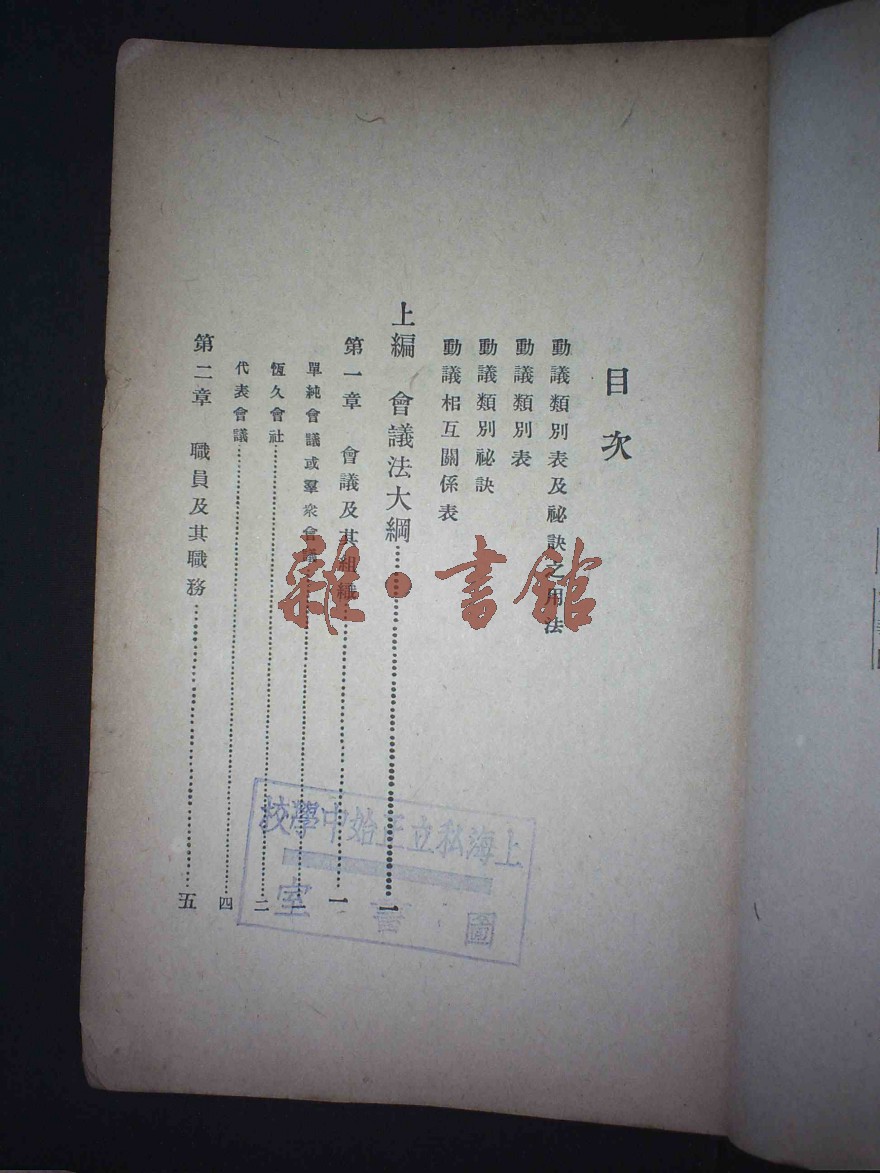 目次
動議類別表及祕訣之用法
動議類別表
動議類別祕訣
動議相互關係表
上編 會議法大綱……一
第一章 會議及其組織……一
單純會議或羣衆會議……一
恆久會社……二
代表會議……四
第二章 職員及其職務……五
雜·書館
上海私立正始中學校
圖書室